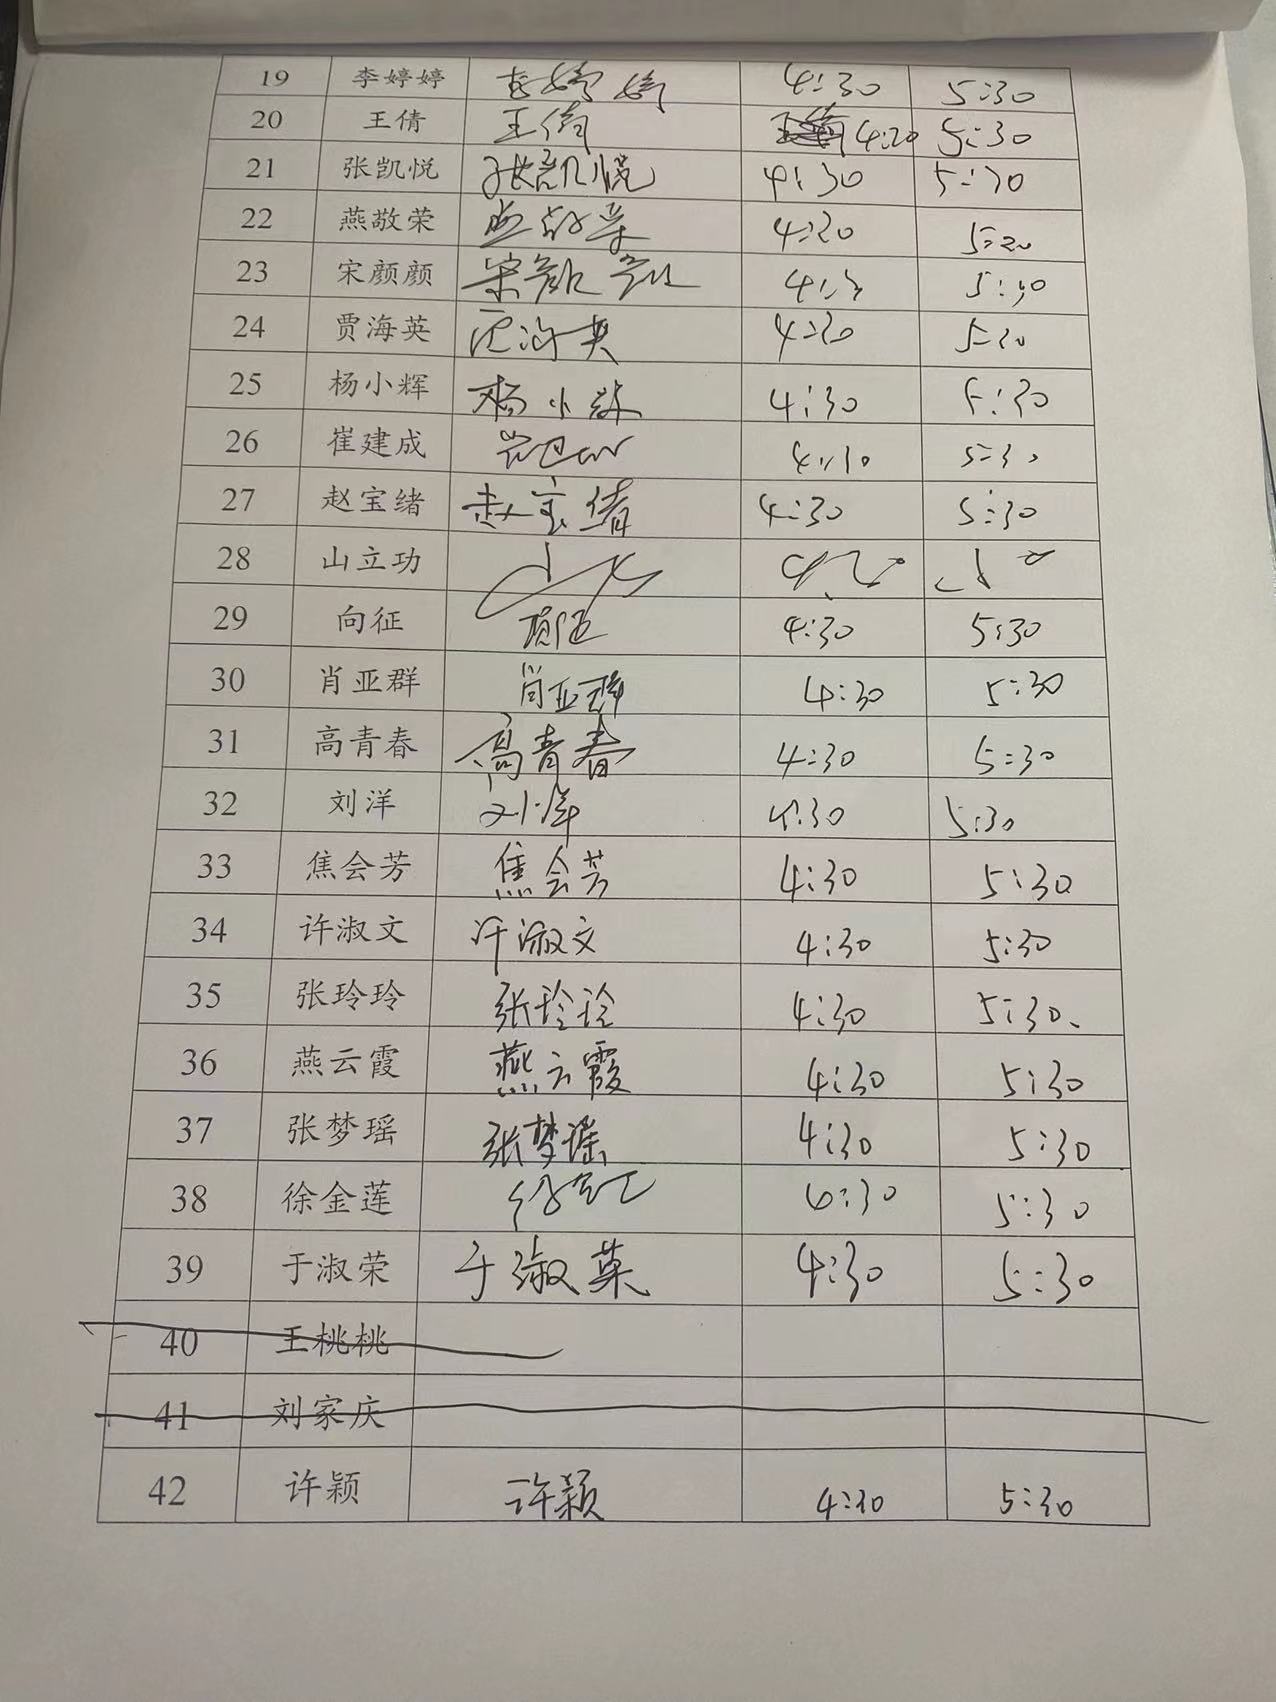 19 李婷婷 李婷婷 4:30 5:30
20 王倩 王倩 4:20 5:30
21 张凯悦 张凯悦 4:30 5:30
22 燕敬荣 燕敬荣 4:20 5:20
23 宋颜颜 宋颜颜 5:30
24 贾海英 贾海英 4:20 5:20
25 杨小辉 杨小辉 4:30 5:30
26 崔建成 5:30
27 赵宝绪 赵宝绪 4:30 5:30
28 山立功
29 向征 4:30 5:30
30 肖亚群 肖亚群 4:30 5:30
31 高青春 高青春 4:30 5:30
32 刘洋 刘洋 4:30 5:30
33 焦会芳 焦会芳 4:30 5:30
34 许淑文 许淑文 4:30 5:30
35 张玲玲 张玲玲 4:30 5:30.
36 燕云霞 燕云霞 4:30 5:30
37 张梦瑶 张梦瑶 4:30 5:30
38 徐金莲 6:30 5:30
39 于淑荣 于淑荣 4:30 5:30
40 王桃桃
41 刘家庆
42 许颖 许颖 4:30 5:30